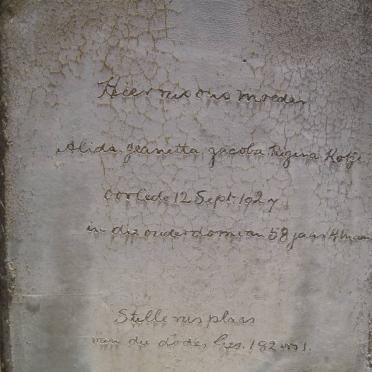 Hier rus ons moeder
Alida Jeanetta Jacoba Regina Kotze
Oorlede 12 Sept. 1927
in die ouderdom van 58 jaar 4 maan
Stille rus plaas
van die Dode, Ges. 182 vrs 1.